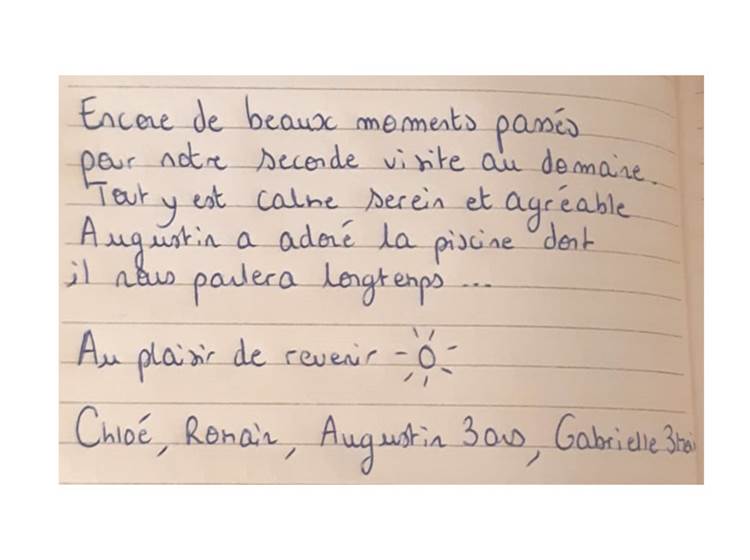 Encore de beaux moments passés
pour notre seconde visite au domaine.
Tout y est calme serein et agréable
Augustin a adoré la piscine dont
il nous parlera longtemps...
Au plaisir de revenir
Chloé, Romain, Augustin 3 ans, Gabrielle